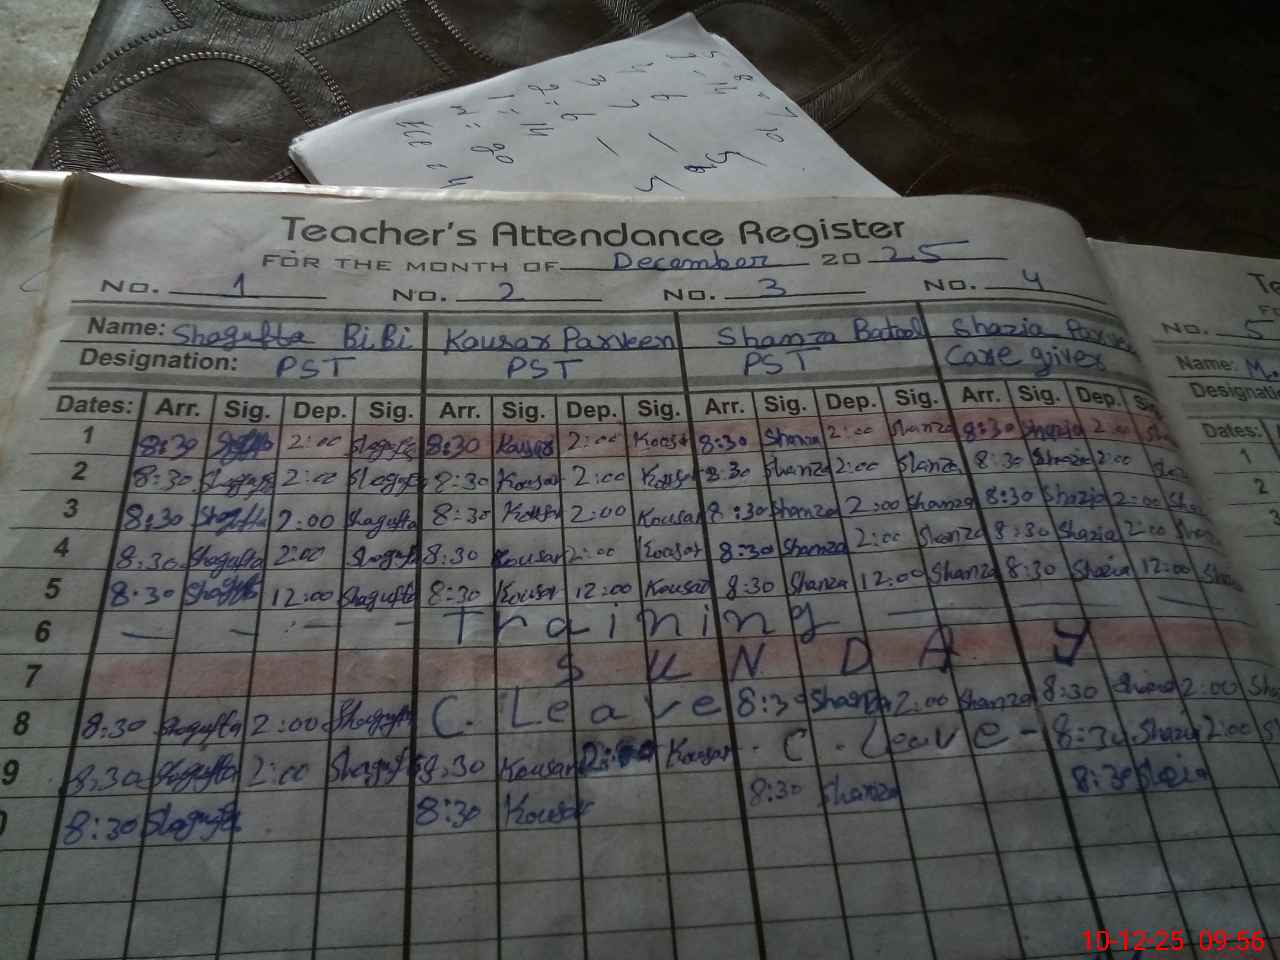 5 = 8 = 7
7 = 14
2 = 6
1 = 14
M = 20
ECE = 4
Teacher's Attendance Register
FOR THE MONTH OF December 20 25
No. 1 No. 2 No. 3 No. 4
No. 5
Name: Shagufta BiBi Kousar Parveen Shamza Batool Shazia Parveen
Name:
Designation: PST PST PST Care giver
Dates: Arr. Sig. Dep. Sig. Arr. Sig. Dep. Sig. Arr. Sig. Dep. Sig. Arr. Sig. Dep. Sig.
Dates:
1 8:30 Shagufta 2:00 Shagufta 8:30 Kousar 2:00 Kousar 8:30 Shamza 2:00 Shamza 8:30 Shazia 2:00 Sha
2 8:30 Shagufta 2:00 Shagufta 8:30 Kousar 2:00 Kousar 8:30 Shamza 2:00 Shamza 8:30 Shazia 2:00
3 8:30 Shagufta 2:00 Shagufta 8:30 Kousar 2:00 Kousar 8:30 Shamza 2:00 Shamza 8:30 Shazia 2:00 Sha
4 8:30 Shagufta 2:00 Shagufta 8:30 Kousar 2:00 Kousar 8:30 Shamza 2:00 Shamza 8:30 Shazia 2:00
5 8:30 Shagufta 12:00 Shagufta 8:30 Kousar 12:00 Kousar 8:30 Shamza 12:00 Shamza 8:30 Shazia 12:00
6 — — — — Training — — —
7 SUNDAY
8 8:30 Shagufta 2:00 Shagufta C. Leave 8:30 Shamza 2:00 Shamza 8:30 Shazia 2:00 Sha
9 8:30 Shagufta 2:00 Shagufta 8:30 Kousar Kousar C. Leave - 8:30 Shazia 2:00
8:30 Shagufta 8:30 Kousar 8:30 Shamza 8:30 Shazia
10-12-25 09:56